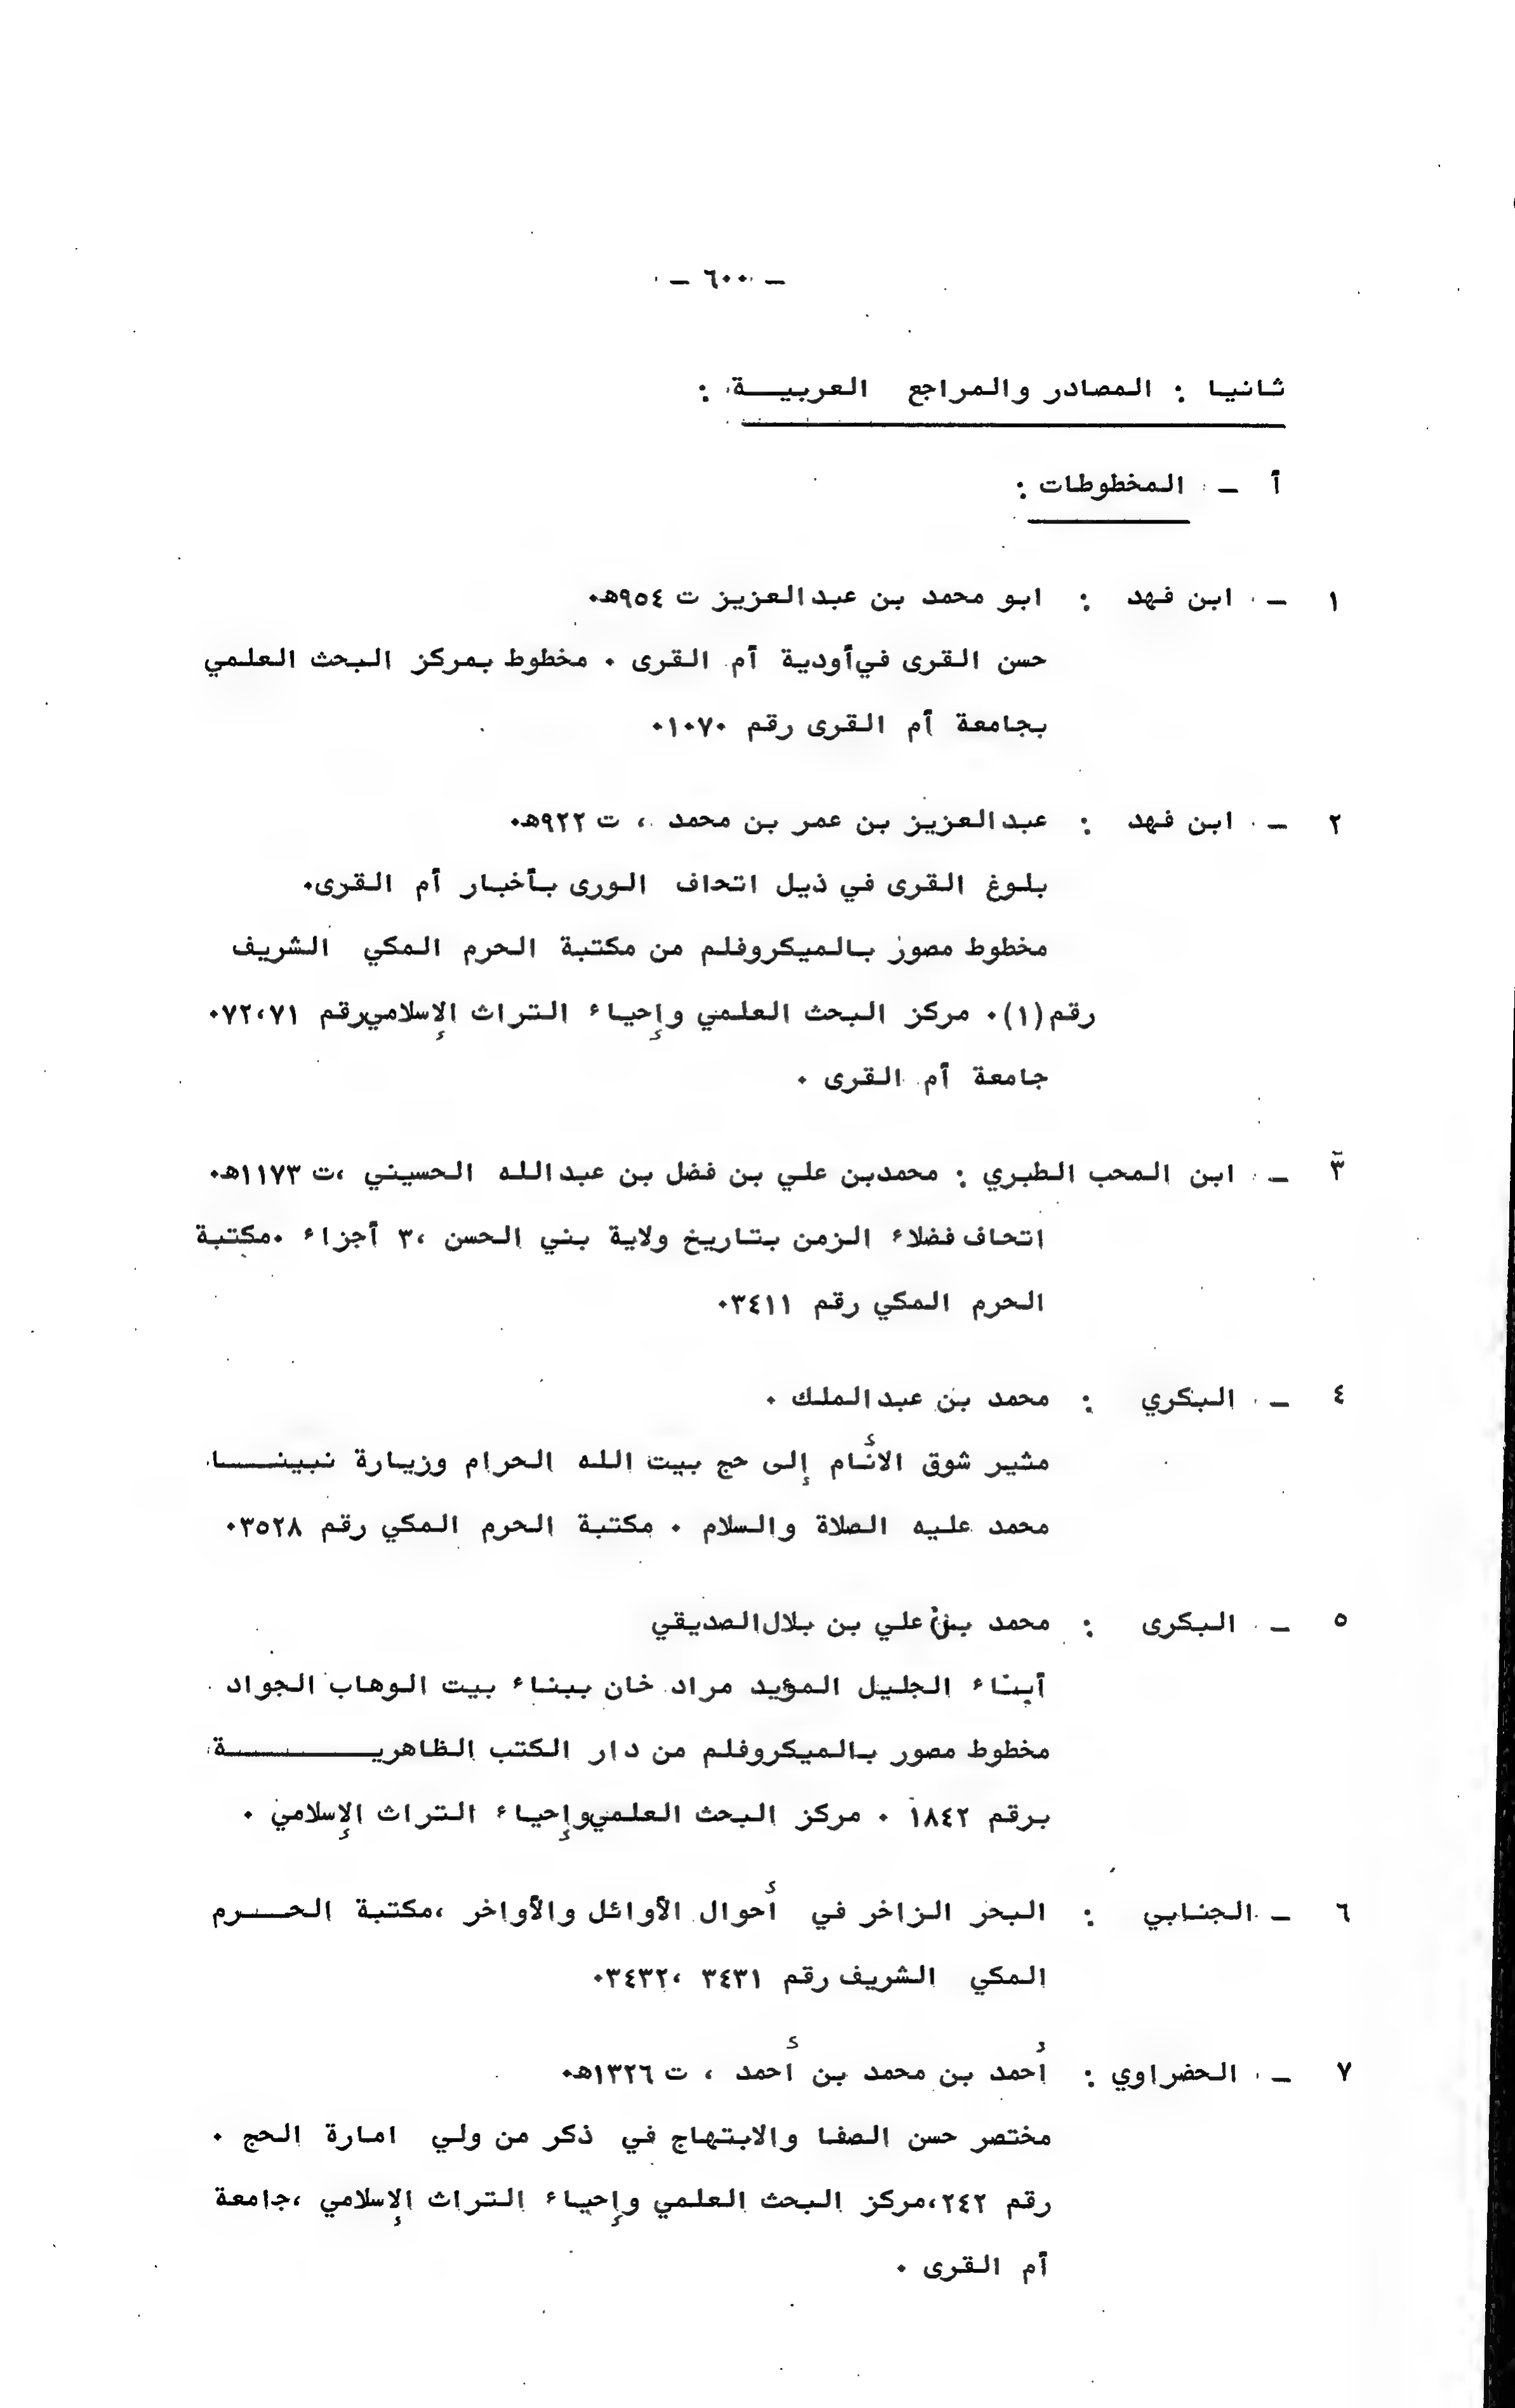 – ٦٠٠ –
ثانيا : المصادر والمراجع العربيــة :
أ – المخطوطات :
١ – ابن فهد : ابو محمد بن عبدالعزيز ت ٩٥٤هـ٠
حسن القرى في أودية أم القرى ٠ مخطوط بمركز البحث العلمي
بجامعة أم القرى رقم ١٠٧٠٠
٢ – ابن فهد : عبدالعزيز بن عمر بن محمد ، ت ٩٢٢هـ٠
بلوغ القرى في ذيل اتحاف الورى بأخبار أم القرى٠
مخطوط مصور بالميكروفلم من مكتبة الحرم المكي الشريف
رقم (١)٠ مركز البحث العلمي وإحياء التراث الإسلامي رقم ٧٢،٧١٠
جامعة أم القرى ٠
٣ – ابن المحب الطبري : محمد بن علي بن فضل بن عبدالله الحسيني ،ت ١١٧٣هـ٠
اتحاف فضلاء الزمن بتاريخ ولاية بني الحسن ،٣ أجزاء ٠مكتبة
الحرم المكي رقم ٣٤١١٠
٤ – البكري : محمد بن عبدالملك ٠
مثير شوق الأنام إلى حج بيت الله الحرام وزيارة نبينــا
محمد عليه الصلاة والسلام ٠ مكتبة الحرم المكي رقم ٣٥٢٨٠
٥ – البكرى : محمد بن علي بن بلال الصديقي
أبناء الجليل المؤيد مراد خان ببناء بيت الوهاب الجواد
مخطوط مصور بالميكروفلم من دار الكتب الظاهريــــــة
برقم ١٨٤٢ ٠ مركز البحث العلمي وإحياء التراث الإسلامي ٠
٦ – الجنابي : البحر الزاخر في أحوال الأوائل والأواخر ،مكتبة الحــرم
المكي الشريف رقم ٣٤٣١ ،٣٤٣٢٠
٧ – الحضراوي : أحمد بن محمد بن أحمد ، ت ١٣٢٦هـ٠
مختصر حسن الصفا والابتهاج في ذكر من ولي امارة الحج ٠
رقم ٢٤٢،مركز البحث العلمي وإحياء التراث الإسلامي ،جامعة
أم القرى ٠